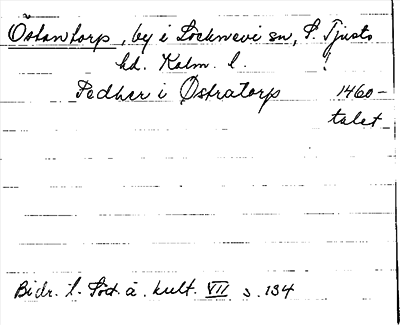 Östantorp, by i Locknevi sn, S. Tjusts
hd. Kalm. l.
Pedher i Østratorp 1460-
talet
Bidr. t. Söd. ä. kult. VII s. 134